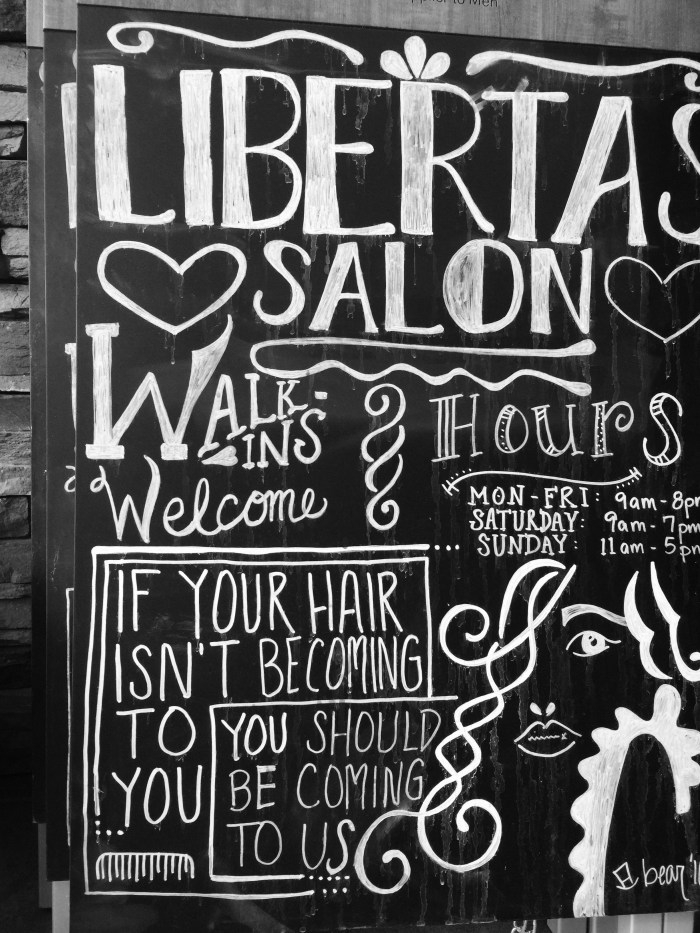 to Men,
LIBERTAS
SALON
WALK-
INS
Welcome
Hours
MON-FRI: 9am-8pm
SATURDAY: 9am-7pm
SUNDAY: 11am-5pm
IF YOUR HAIR
ISN'T BECOMING
TO
YOU
YOU SHOULD
BE COMING
TO US
bear